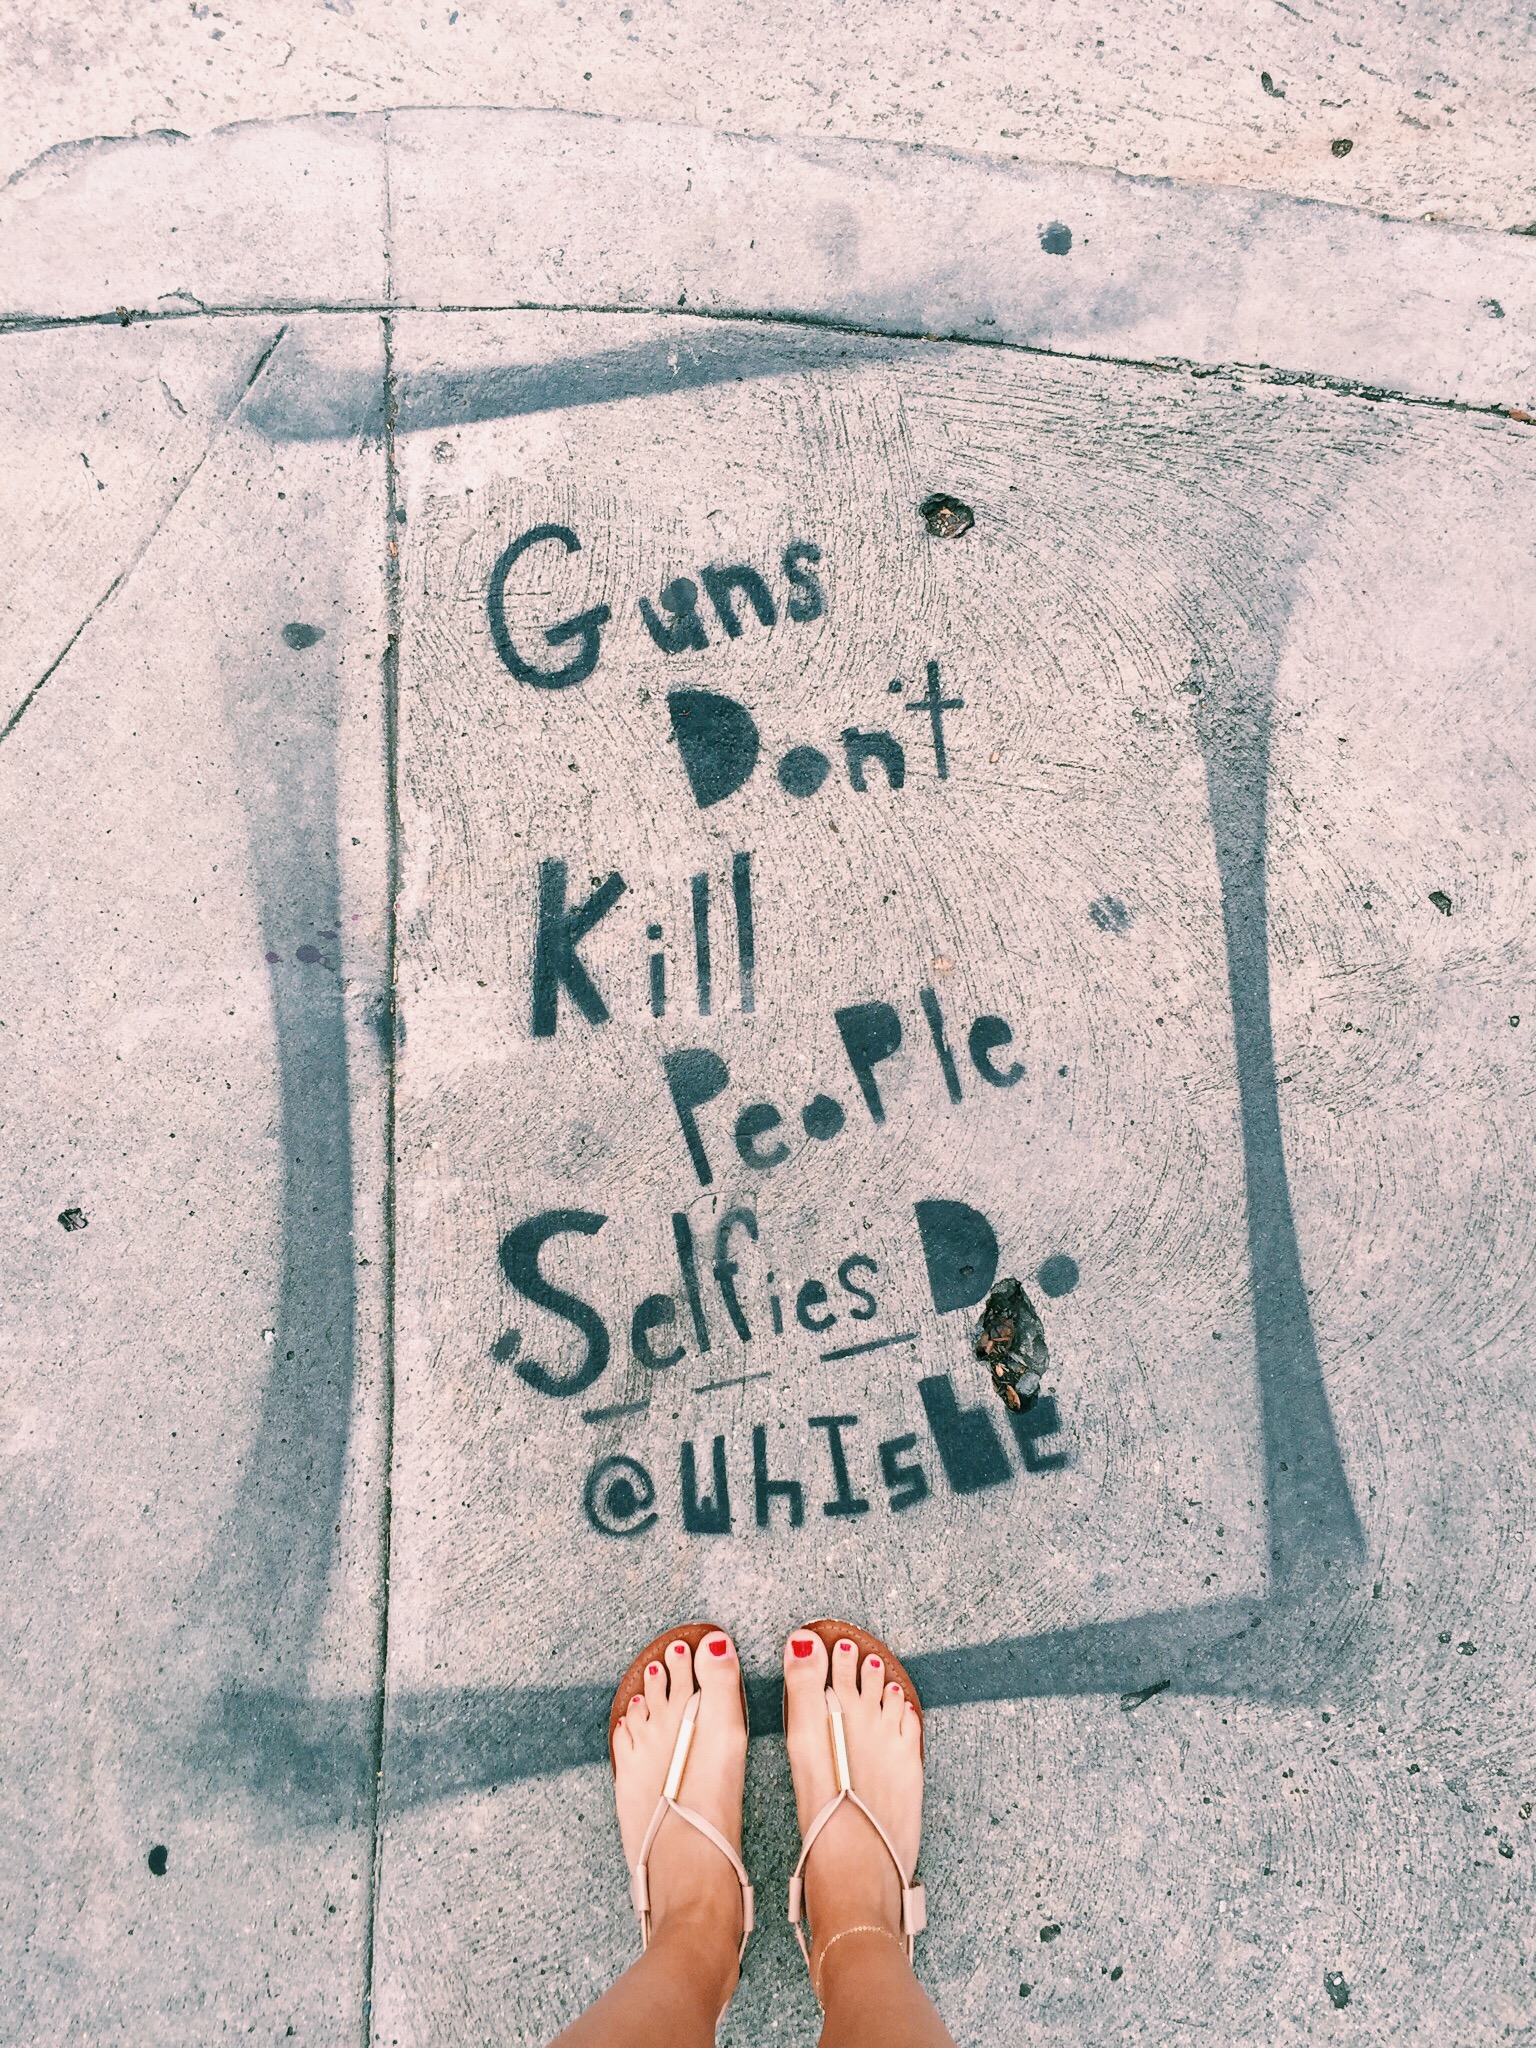 Guns
Don't
Kill
PeoPle
Selfies Do
@WhIsBE